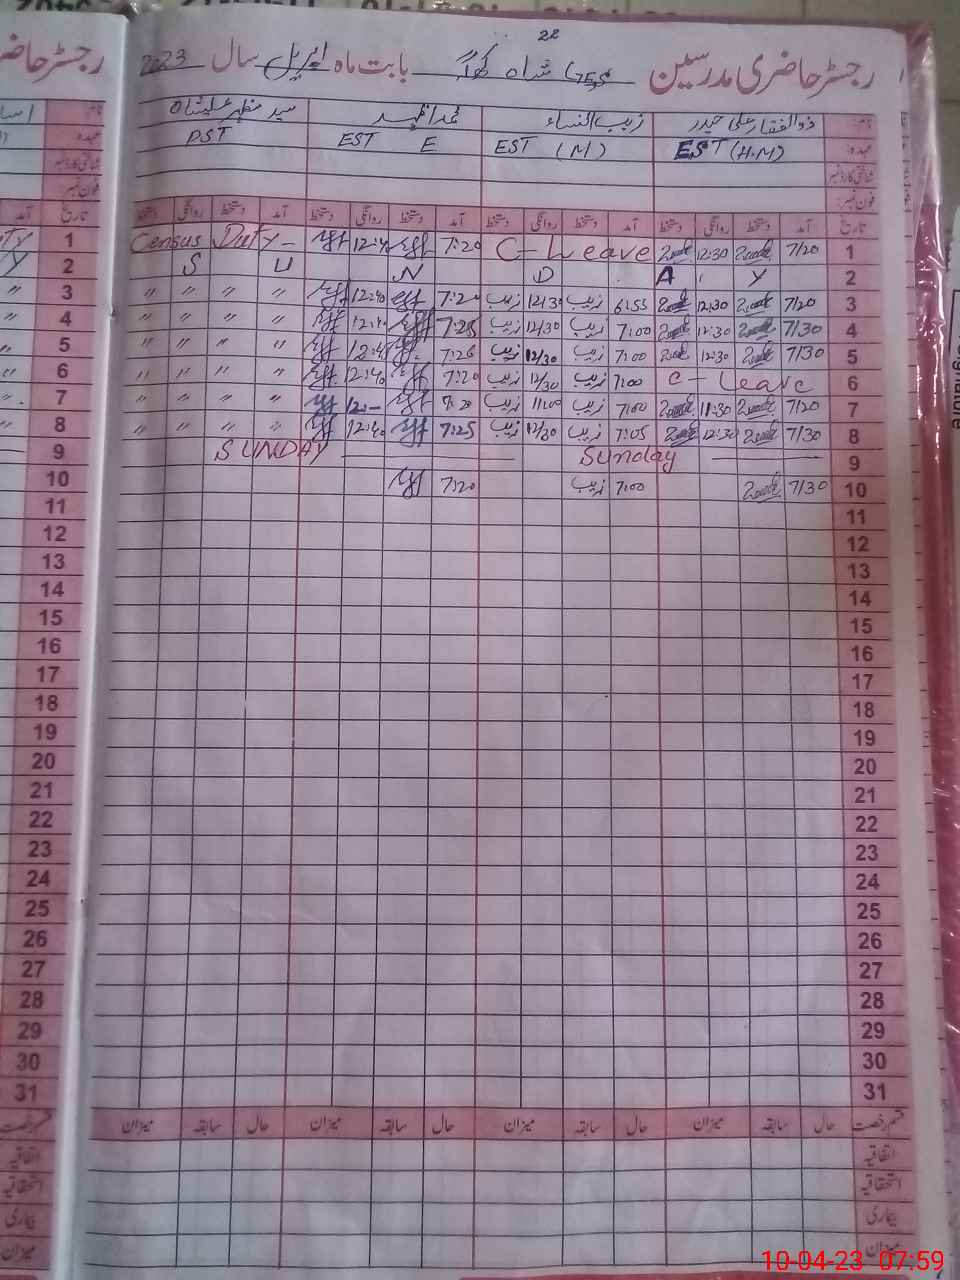 22
رجسٹر حاضری مدرسین GES شاہ بابت ماہ اپریل سال 2023
نام: ذوالفقار علی حیدر زیب النساء محمد اظہر سید مظہر علیشاہ
عہدہ: EST (H.M) EST (M) EST E PST
شناختی کارڈ نمبر
فون نمبر:
تاریخ آمد دستخط روانگی دستخط آمد دستخط روانگی دستخط آمد دستخط روانگی دستخط آمد دستخط روانگی دستخط تاریخ
1 Census Duty - 12:40 7:20 C - Leave 12:30 7/20 1
2 S U N D A Y 2
3 〃 〃 〃 〃 12:40 7:20 زیب 12/30 زیب 6:55 12:30 7/20 3
4 〃 〃 〃 〃 12:40 7:25 زیب 12/30 زیب 7:00 12:30 7/30 4
5 〃 〃 〃 〃 12:40 7:26 زیب 12/30 زیب 7:00 12:30 7/30 5
6 〃 〃 〃 〃 12:40 7:20 زیب 12/30 زیب 7:00 C - Leave 6
7 〃 〃 〃 〃 12:- 7:20 زیب 11:00 زیب 7:00 11:30 7/20 7
8 〃 〃 〃 〃 12:40 7:25 زیب 12/30 زیب 7:05 12:30 7/30 8
9 SUNDAY Sunday 9
10 7:20 زیب 7:00 7/30 10
11 11
12 12
13 13
14 14
15 15
16 16
17 17
18 18
19 19
20 20
21 21
22 22
23 23
24 24
25 25
26 26
27 27
28 28
29 29
30 30
31 31
قسم رخصت حال سابقہ میزان حال سابقہ میزان حال سابقہ میزان حال سابقہ میزان
اتفاقیہ
استحقاقیہ
بیماری
میزان
10-04-23 07:59